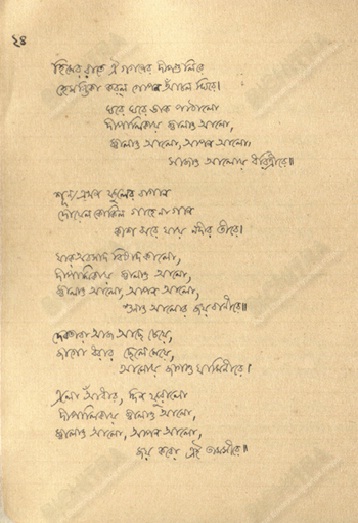 ২৪
হিমের রাতে ঐ গগনের দীপগুলিরে
হেমন্তিকা করল গোপন আঁচল ঘিরে।
ঘরে ঘরে ডাক পাঠালো
দীপালিকায় জ্বালাও আলো,
জ্বালাও আলো, আপন আলো,
সাজাও আলোয় ধরিত্রীরে॥
শূন্য এখন ফুলের বাগান
দোয়েল কোকিল গাহে না গান
কাশ ঝরে যায় নদীর তীরে।
যাক অবসাদ বিষাদ কালো,
দীপালিকায় জ্বালাও আলো,
জ্বালাও আলো, আপন আলো,
শুনাও আলোর জয়বাণীরে॥
দেবতারা আজ আছে চেয়ে,
জাগো ধরার ছেলেমেয়ে,
আলোয় জাগাও যামিনীরে।
এলো আঁধার, দিন ফুরালো
দীপালিকায় জ্বালাও আলো,
জ্বালাও আলো, আপন আলো,
জয় করো এই তামসীরে॥